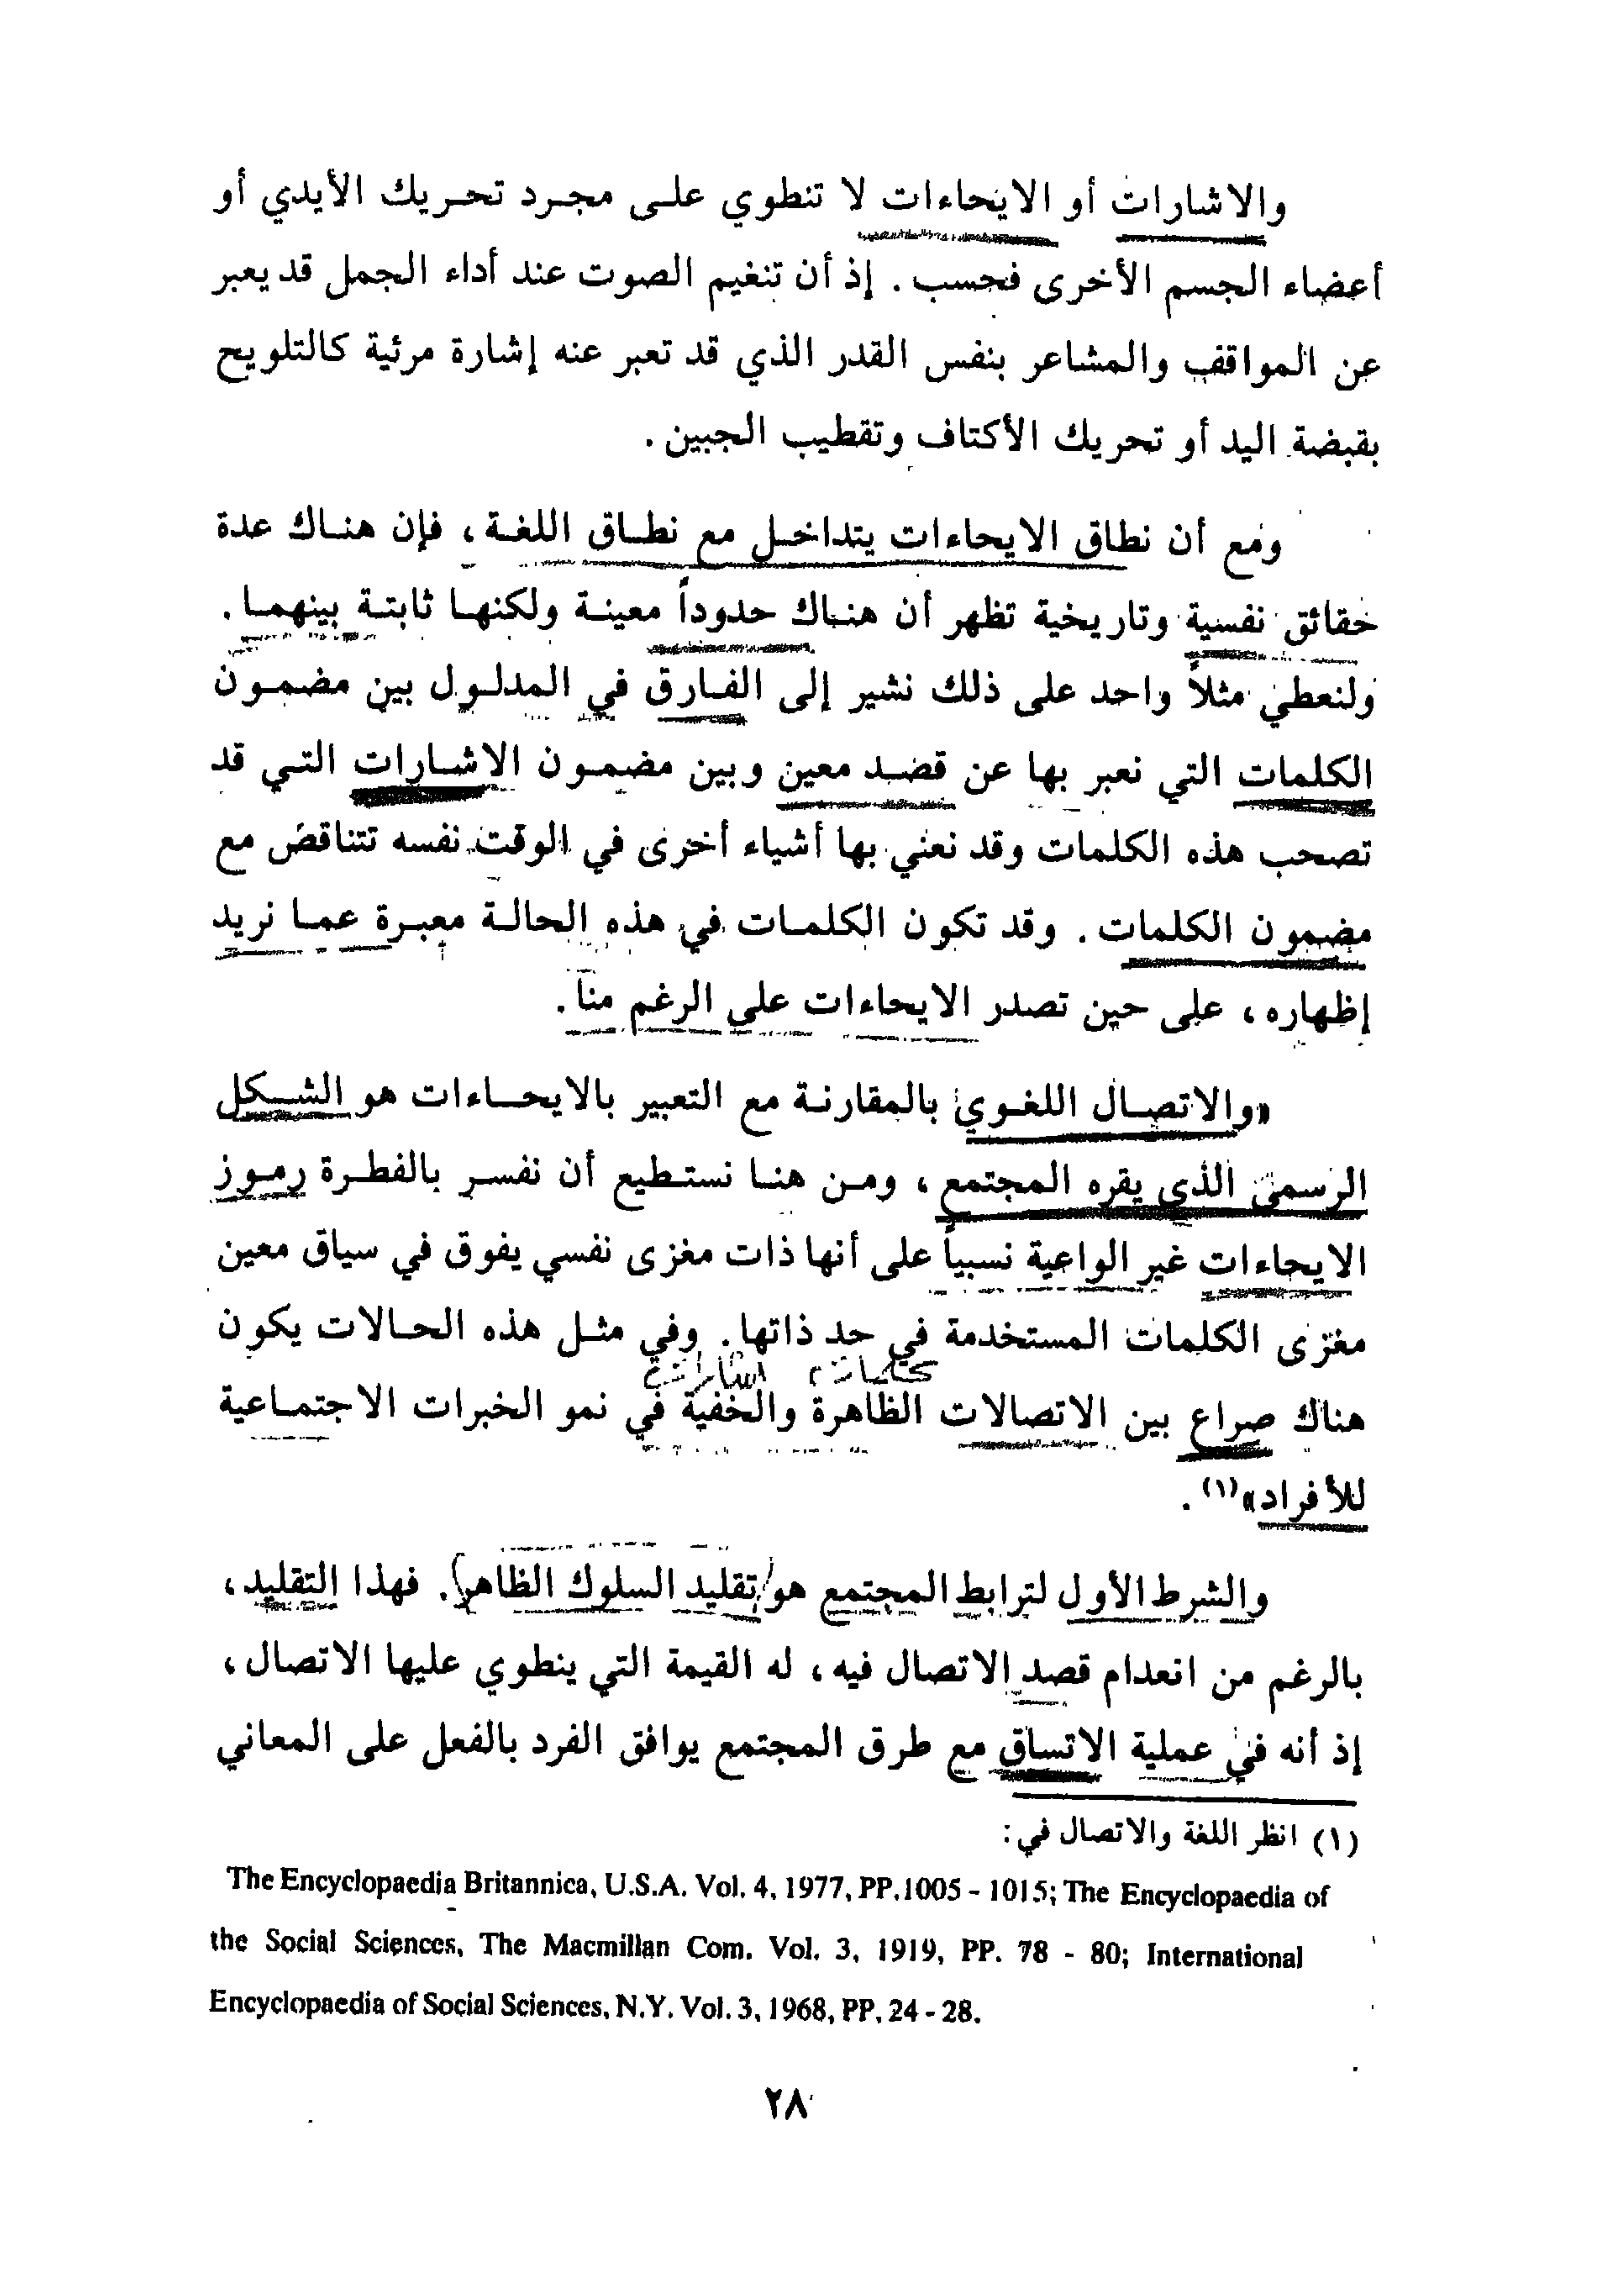 والاشارات أو الايحاءات لا تنطوي على مجرد تحريك الأيدي أو
أعضاء الجسم الأخرى فحسب . إذ أن تنغيم الصوت عند أداء الجمل قد يعبر
عن المواقف والمشاعر بنفس القدر الذي قد تعبر عنه إشارة مرئية كالتلويح
بقبضة اليد أو تحريك الأكتاف وتقطيب الجبين .
ومع أن نطاق الايحاءات يتداخل مع نطاق اللغة ، فإن هناك عدة
حقائق نفسية وتاريخية تظهر أن هناك حدوداً معينة ولكنها ثابتة بينهما .
ولنعطي مثلاً واحد على ذلك نشير إلى الفارق في المدلول بين مضمون
الكلمات التي نعبر بها عن قصد معين وبين مضمون الاشارات التي قد
تصحب هذه الكلمات وقد نعني بها أشياء أخرى في الوقت نفسه تتناقض مع
مضمون الكلمات . وقد تكون الكلمات في هذه الحالة معبرة عما نريد
إظهاره ، على حين تصدر الايحاءات على الرغم منا .
«والاتصال اللغوي بالمقارنة مع التعبير بالايحاءات هو الشكل
الرسمي الذي يقره المجتمع ، ومن هنا نستطيع أن نفسر بالفطرة رموز
الايحاءات غير الواعية نسبياً على أنها ذات مغزى نفسي يفوق في سياق معين
مغزى الكلمات المستخدمة في حد ذاتها . وفي مثل هذه الحالات يكون
هناك صراع بين الاتصالات الظاهرة والخفية في نمو الخبرات الاجتماعية
للأفراد»(١) .
والشرط الأول لترابط المجتمع هو (تقليد السلوك الظاهر) . فهذا التقليد ،
بالرغم من انعدام قصد الاتصال فيه ، له القيمة التي ينطوي عليها الاتصال ،
إذ أنه في عملية الاتساق مع طرق المجتمع يوافق الفرد بالفعل على المعاني
(١) انظر اللغة والاتصال في :
The Encyclopaedia Britannica, U.S.A. Vol. 4, 1977, PP. 1005 - 1015; The Encyclopaedia of
the Social Sciences, The Macmillan Com. Vol. 3, 1919, PP. 78 - 80; International
Encyclopaedia of Social Sciences, N.Y. Vol. 3, 1968, PP. 24 - 28.
٢٨